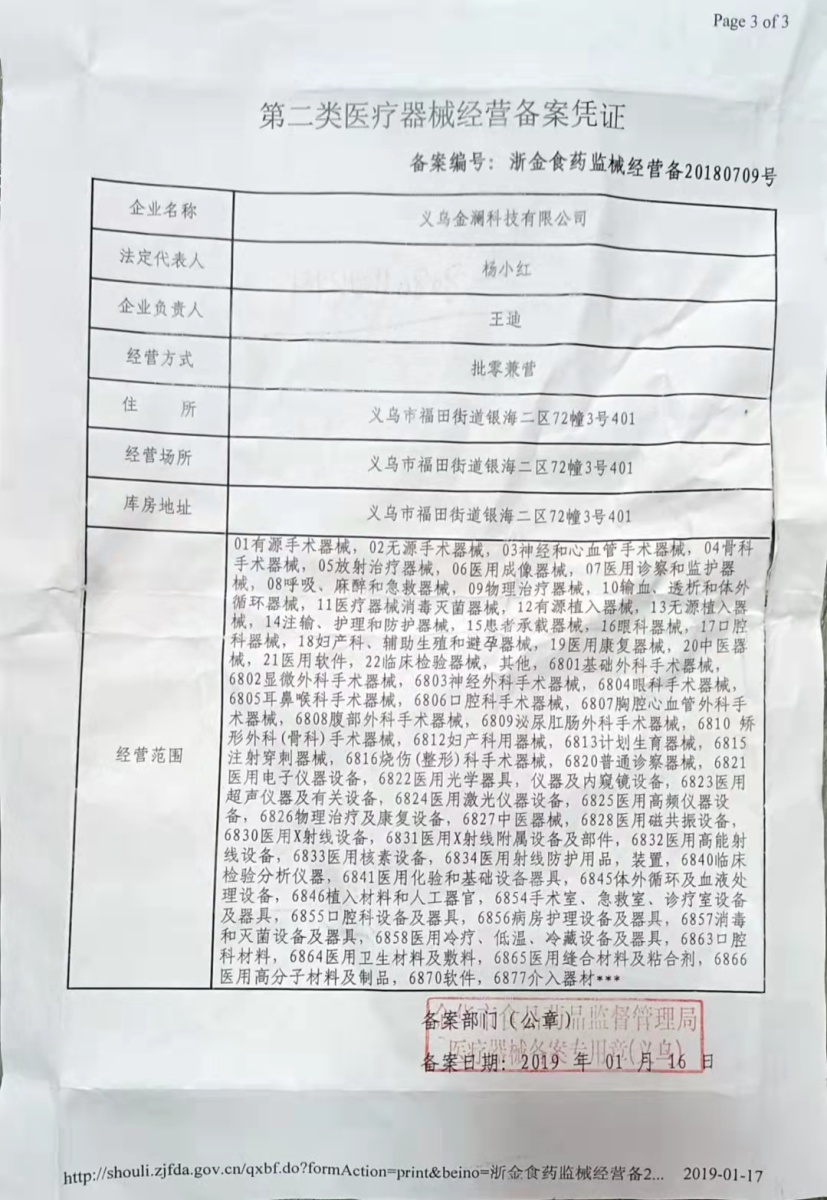 Page 3 of 3
第二类医疗器械经营备案凭证
备案编号：浙金食药监械经营备20180709号
企业名称 义乌金澜科技有限公司
法定代表人 杨小红
企业负责人 王迪
经营方式 批零兼营
住 所 义乌市福田街道银海二区72幢3号401
经营场所 义乌市福田街道银海二区72幢3号401
库房地址 义乌市福田街道银海二区72幢3号401
经营范围
01有源手术器械，02无源手术器械，03神经和心血管手术器械，04骨科
手术器械，05放射治疗器械，06医用成像器械，07医用诊察和监护器
械，08呼吸、麻醉和急救器械，09物理治疗器械，10输血、透析和体外
循环器械，11医疗器械消毒灭菌器械，12有源植入器械，13无源植入器
械，14注输、护理和防护器械，15患者承载器械，16眼科器械，17口腔
科器械，18妇产科、辅助生殖和避孕器械，19医用康复器械，20中医器
械，21医用软件，22临床检验器械，其他，6801基础外科手术器械，
6802显微外科手术器械，6803神经外科手术器械，6804眼科手术器械，
6805耳鼻喉科手术器械，6806口腔科手术器械，6807胸腔心血管外科手
术器械，6808腹部外科手术器械，6809泌尿肛肠外科手术器械，6810 矫
形外科(骨科)手术器械，6812妇产科用器械，6813计划生育器械，6815
注射穿刺器械，6816烧伤(整形)科手术器械，6820普通诊察器械，6821
医用电子仪器设备，6822医用光学器具，仪器及内窥镜设备，6823医用
超声仪器及有关设备，6824医用激光仪器设备，6825医用高频仪器设
备，6826物理治疗及康复设备，6827中医器械，6828医用磁共振设备，
6830医用X射线设备，6831医用X射线附属设备及部件，6832医用高能射
线设备，6833医用核素设备，6834医用射线防护用品，装置，6840临床
检验分析仪器，6841医用化验和基础设备器具，6845体外循环及血液处
理设备，6846植入材料和人工器官，6854手术室、急救室、诊疗室设备
及器具，6855口腔科设备及器具，6856病房护理设备及器具，6857消毒
和灭菌设备及器具，6858医用冷疗、低温、冷藏设备及器具，6863口腔
科材料，6864医用卫生材料及敷料，6865医用缝合材料及粘合剂，6866
医用高分子材料及制品，6870软件，6877介入器材***
金华市食品药品监督管理局
医疗器械备案专用章(义乌)
备案部门（公章）
备案日期：2019 年 01 月 16 日
http://shouli.zjfda.gov.cn/qxbf.do?formAction=print&beino=浙金食药监械经营备2... 2019-01-17